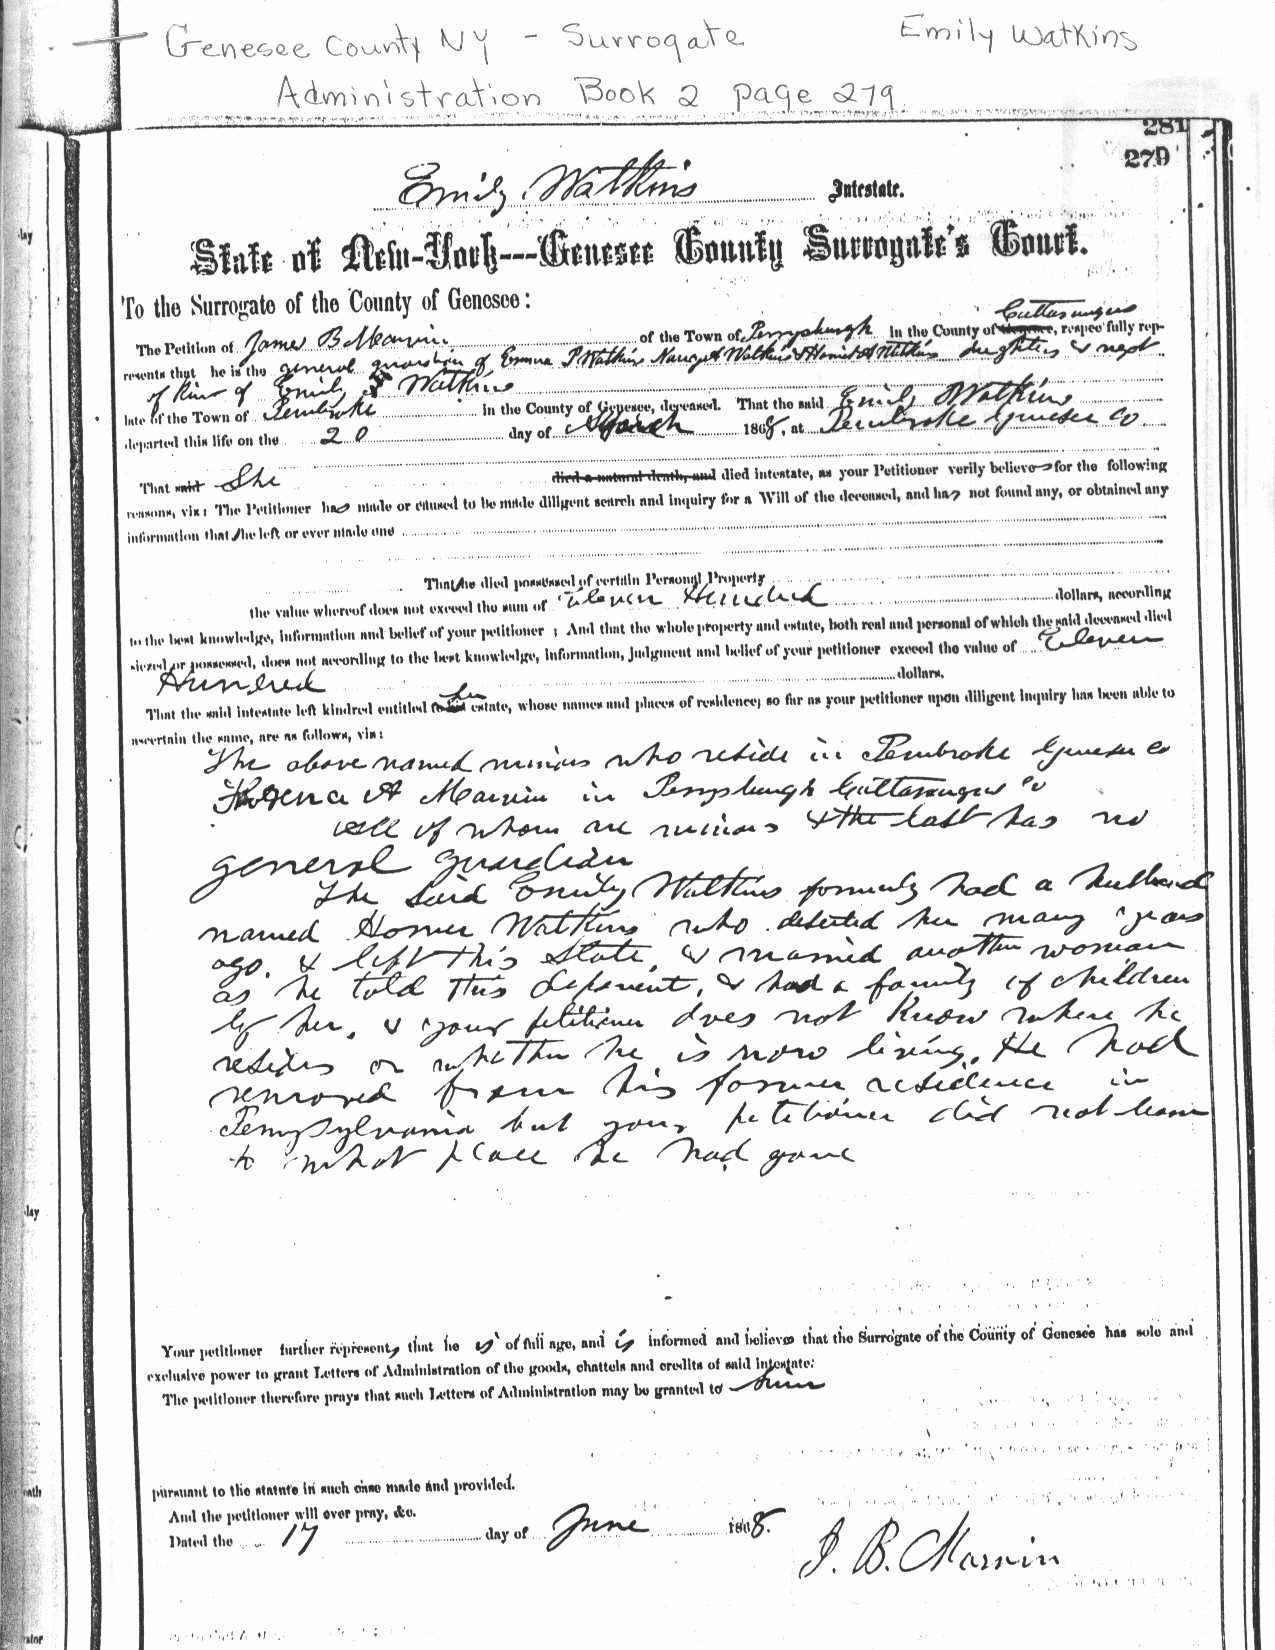 Genesee County NY - Surrogate Emily Watkins
Administration Book 2 page 279
281
279
Emily Watkins Intestate.
State of New-York---Genesee County Surrogate's Court.
To the Surrogate of the County of Genesee:
Cattaraugus
The Petition of James B Marvin of the Town of Perrysburgh in the County of Genesee, respectfully rep-
resents that he is the general guardian of Emma P. Watkins Nancy A Watkins & Harriet A Watkins daughters & next
of kin of Emily Watkins
late of the Town of Pembroke in the County of Genesee, deceased. That the said Emily Watkins
departed this life on the 20 day of March 1868, at Pembroke Genesee Co
That said She died a natural death, and died intestate, as your Petitioner verily believes for the following
reasons, viz: The Petitioner has made or caused to be made diligent search and inquiry for a Will of the deceased, and has not found any, or obtained any
information that she left or ever made one
That she died possessed of certain Personal Property
the value whereof does not exceed the sum of Eleven Hundred dollars, according
to the best knowledge, information and belief of your petitioner; And that the whole property and estate, both real and personal of which the said deceased died
siezed or possessed, does not according to the best knowledge, information, judgment and belief of your petitioner exceed the value of Eleven
Hundred dollars.
her
That the said intestate left kindred entitled to his estate, whose names and places of residence; so far as your petitioner upon diligent inquiry has been able to
ascertain the same, are as follows, viz:
The above named minors who reside in Pembroke Genesee Co
A Marvin in Perrysburgh Cattaraugus Co
all of whom are minors & the last has no
general guardian
The said Emily Watkins formerly had a husband
named Homer Watkins who deserted her many years
ago. & left this State, & married another woman
as he told this deponent, & had a family of children
by her. & your petitioner does not know where he
resides or whether he is now living. He had
removed from his former residence in
Pennsylvania but your petitioner did not learn
to what place he had gone
Your petitioner further represents that he is of full age, and is informed and believes that the Surrogate of the County of Genesee has sole and
exclusive power to grant Letters of Administration of the goods, chattels and credits of said intestate:
The petitioner therefore prays that such Letters of Administration may be granted to him
pursuant to the statute in such case made and provided.
And the petitioner will ever pray, &c.
Dated the 17 day of June 1868.
J. B. Marvin